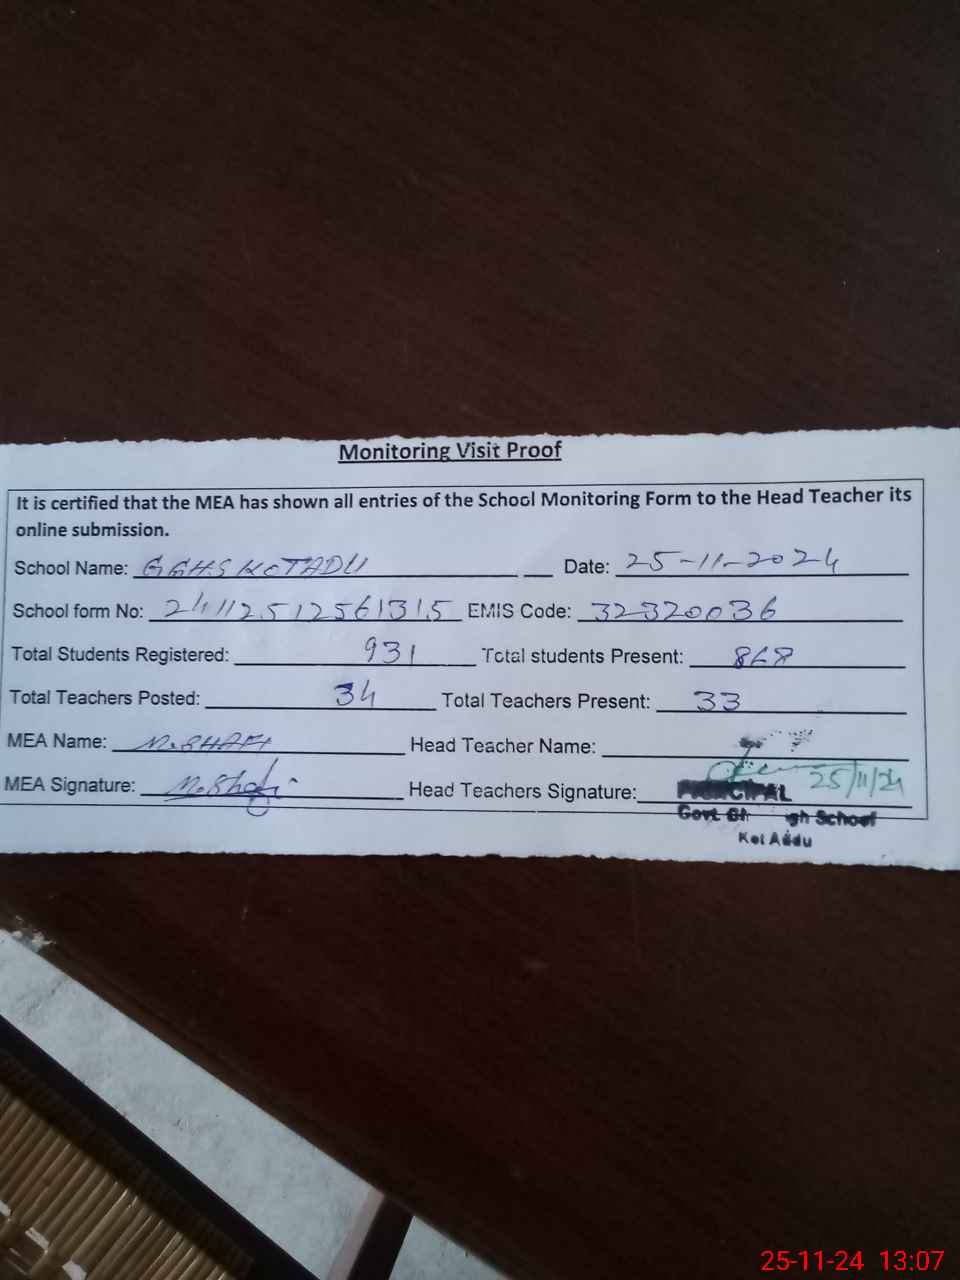 Monitoring Visit Proof
It is certified that the MEA has shown all entries of the School Monitoring Form to the Head Teacher its
online submission.
School Name: GGHS KOTADU Date: 25-11-2024
School form No: 24112512561315 EMIS Code: 32320036
Total Students Registered: 931 Total students Present: 868
Total Teachers Posted: 34 Total Teachers Present: 33
MEA Name: M.SHAFI Head Teacher Name:
MEA Signature: M.Shafi Head Teachers Signature: 25/11/24
PRINCIPAL
Govt. gh School
Kot Addu
25-11-24 13:07